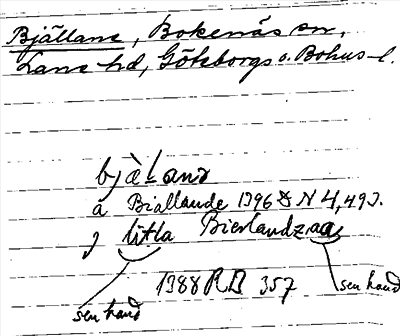 Bjällane, Bokenäs sn,
Lane hd, Göteborgs o. Bohus l.
bjäLand
a Biallande 1396 DN 4,493.
j litla Bierlandzaa
1388 RB 357
sen hand
sen hand